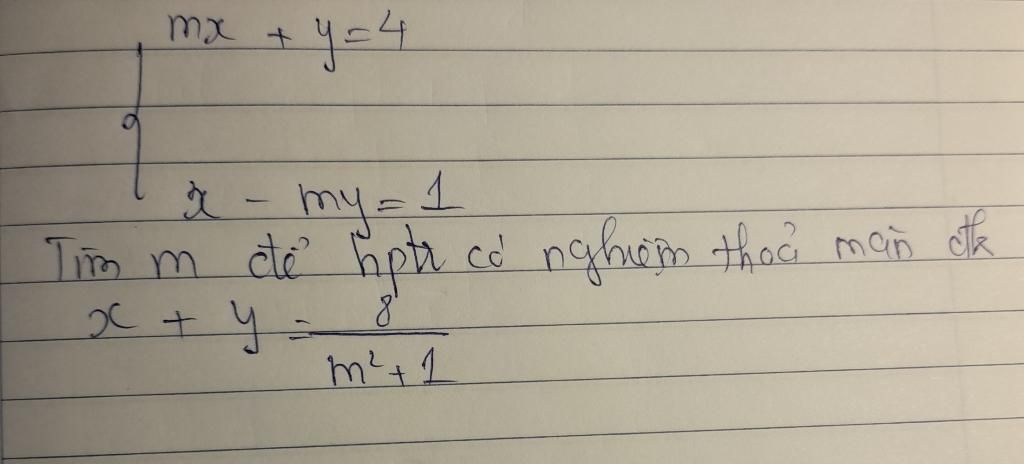 mx + y = 4
x - my = 1
Tìm m để hptr có nghiệm thoả mãn đk
x + y = 8/(m² + 1)